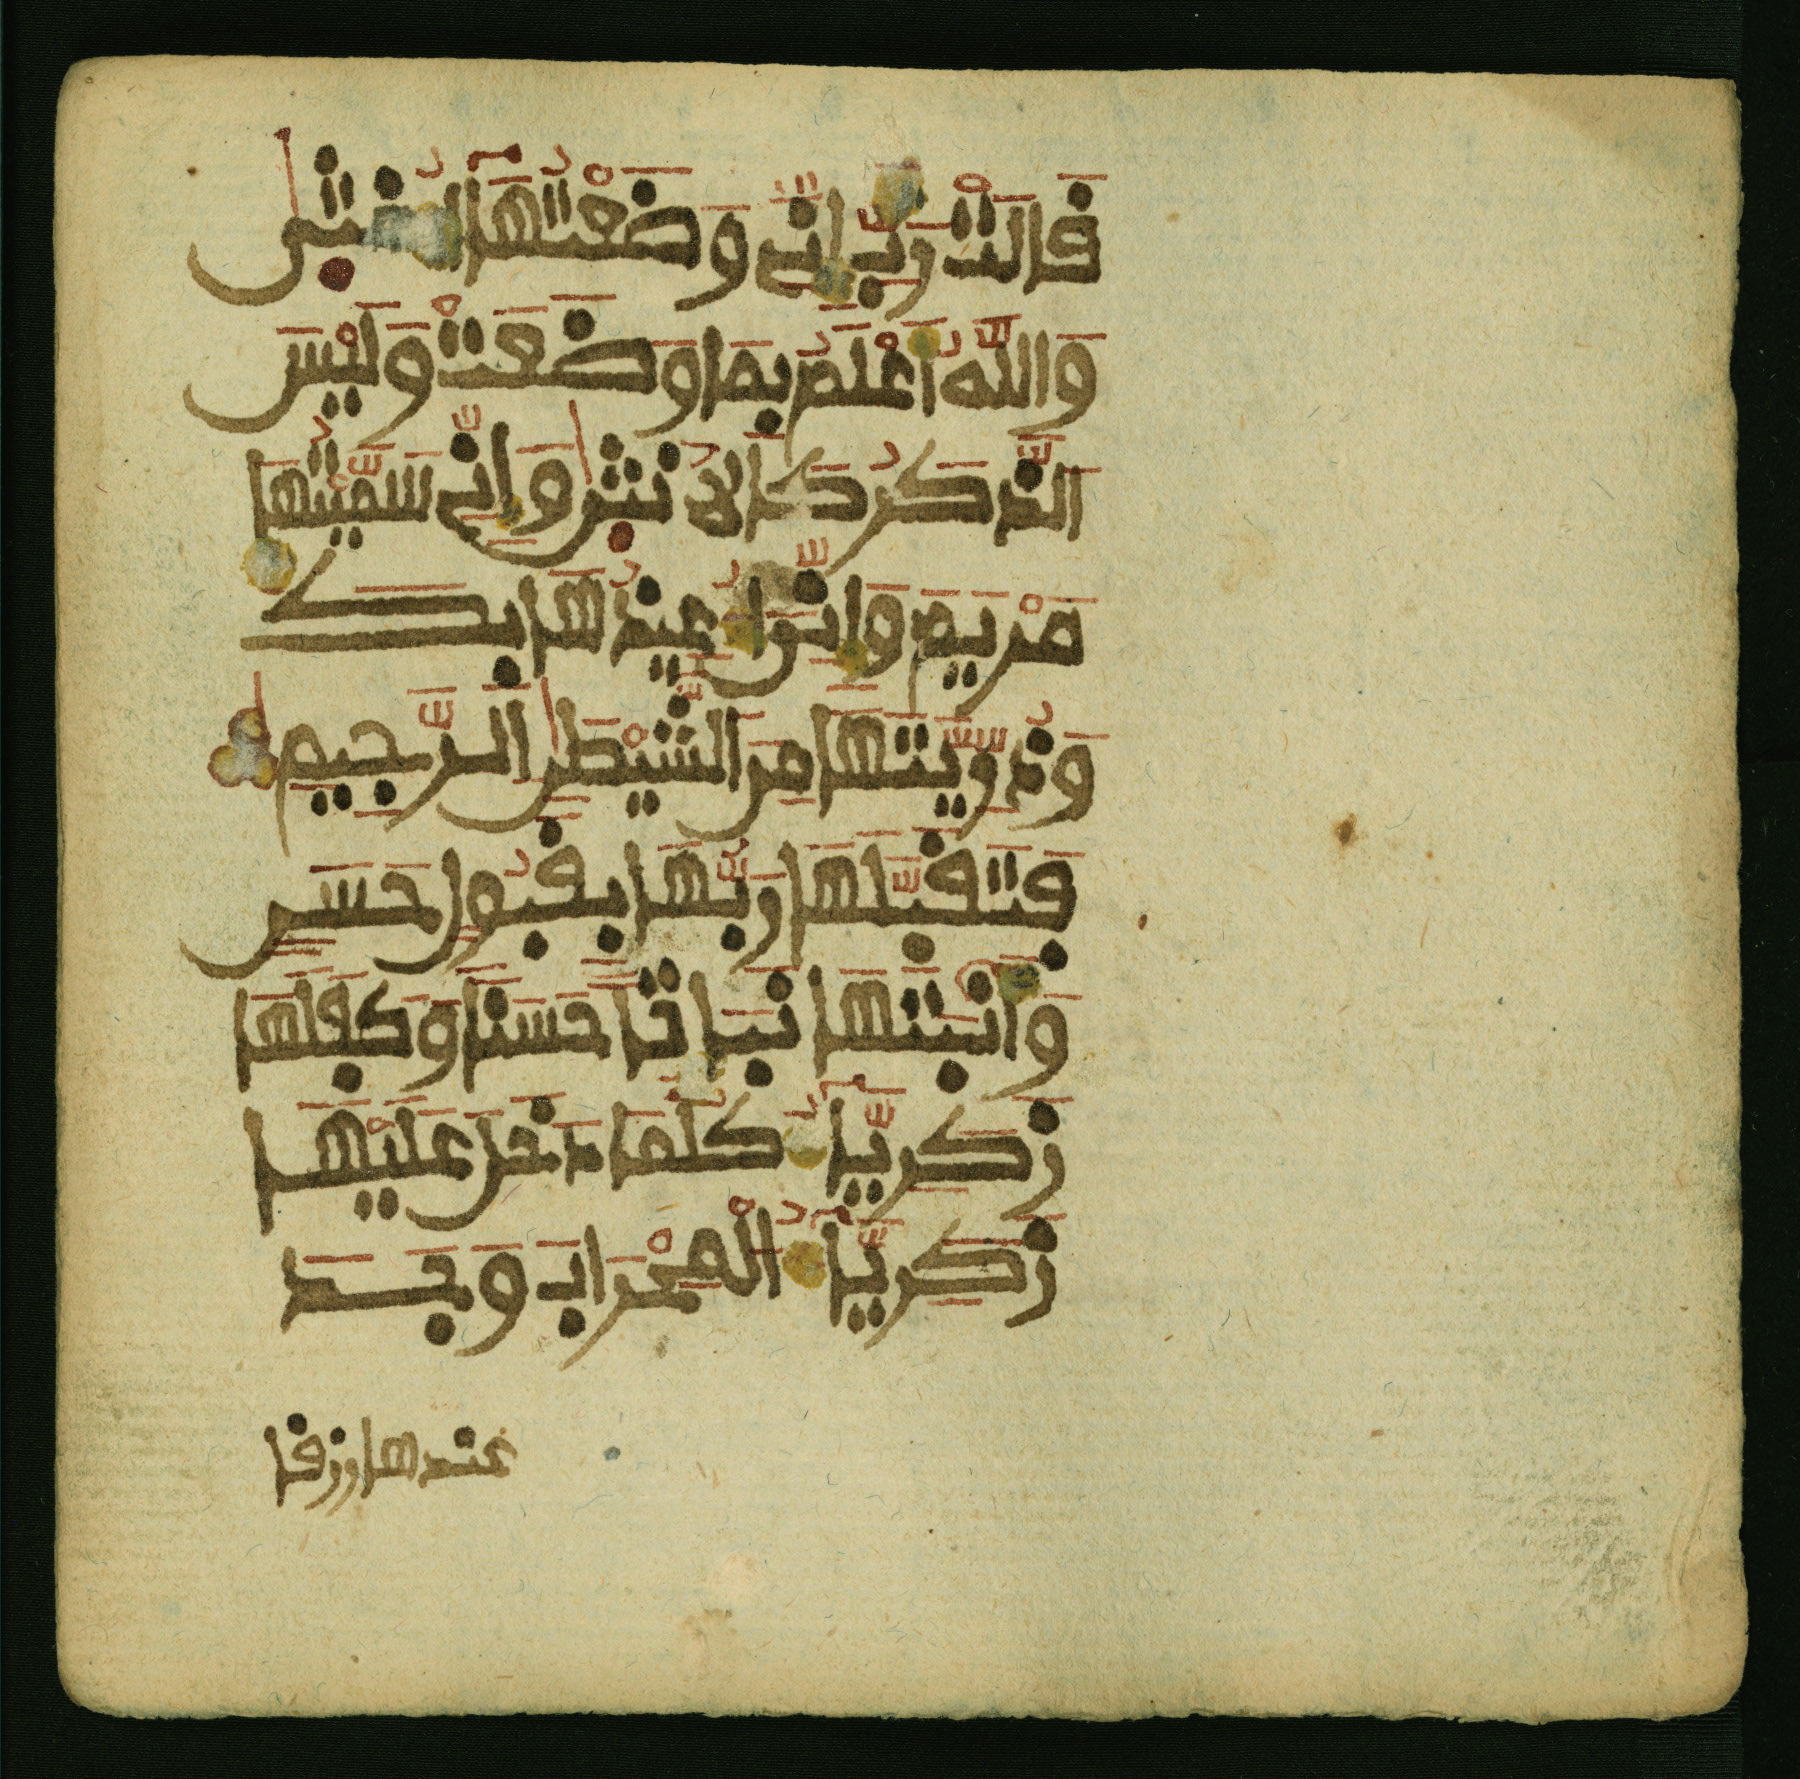 قَالَتْ رَبِّ إِنِّي وَضَعْتُهَآ أُنثَىٰ
وَاللَّهُ أَعْلَمُ بِمَا وَضَعَتْ وَلَيْسَ
الذَّكَرُ كَالُانثَىٰ وَإِنِّي سَمَّيْتُهَا
مَرْيَمَ وَإِنِّيَ أُعِيذُهَا بِكَ
وَذُرِّيَّتَهَا مِنَ الشَّيْطَٰنِ الرَّجِيمِ
فَتَقَبَّلَهَا رَبُّهَا بِقَبُولٍ حَسَنٍ
وَأَنبَتَهَا نَبَاتًا حَسَنًا وَكَفَلَهَا
زَكَرِيَّآءُ كُلَّمَا دَخَلَ عَلَيْهَا
زَكَرِيَّآءُ الْمِحْرَابَ وَجَدَ
عندها رزقا